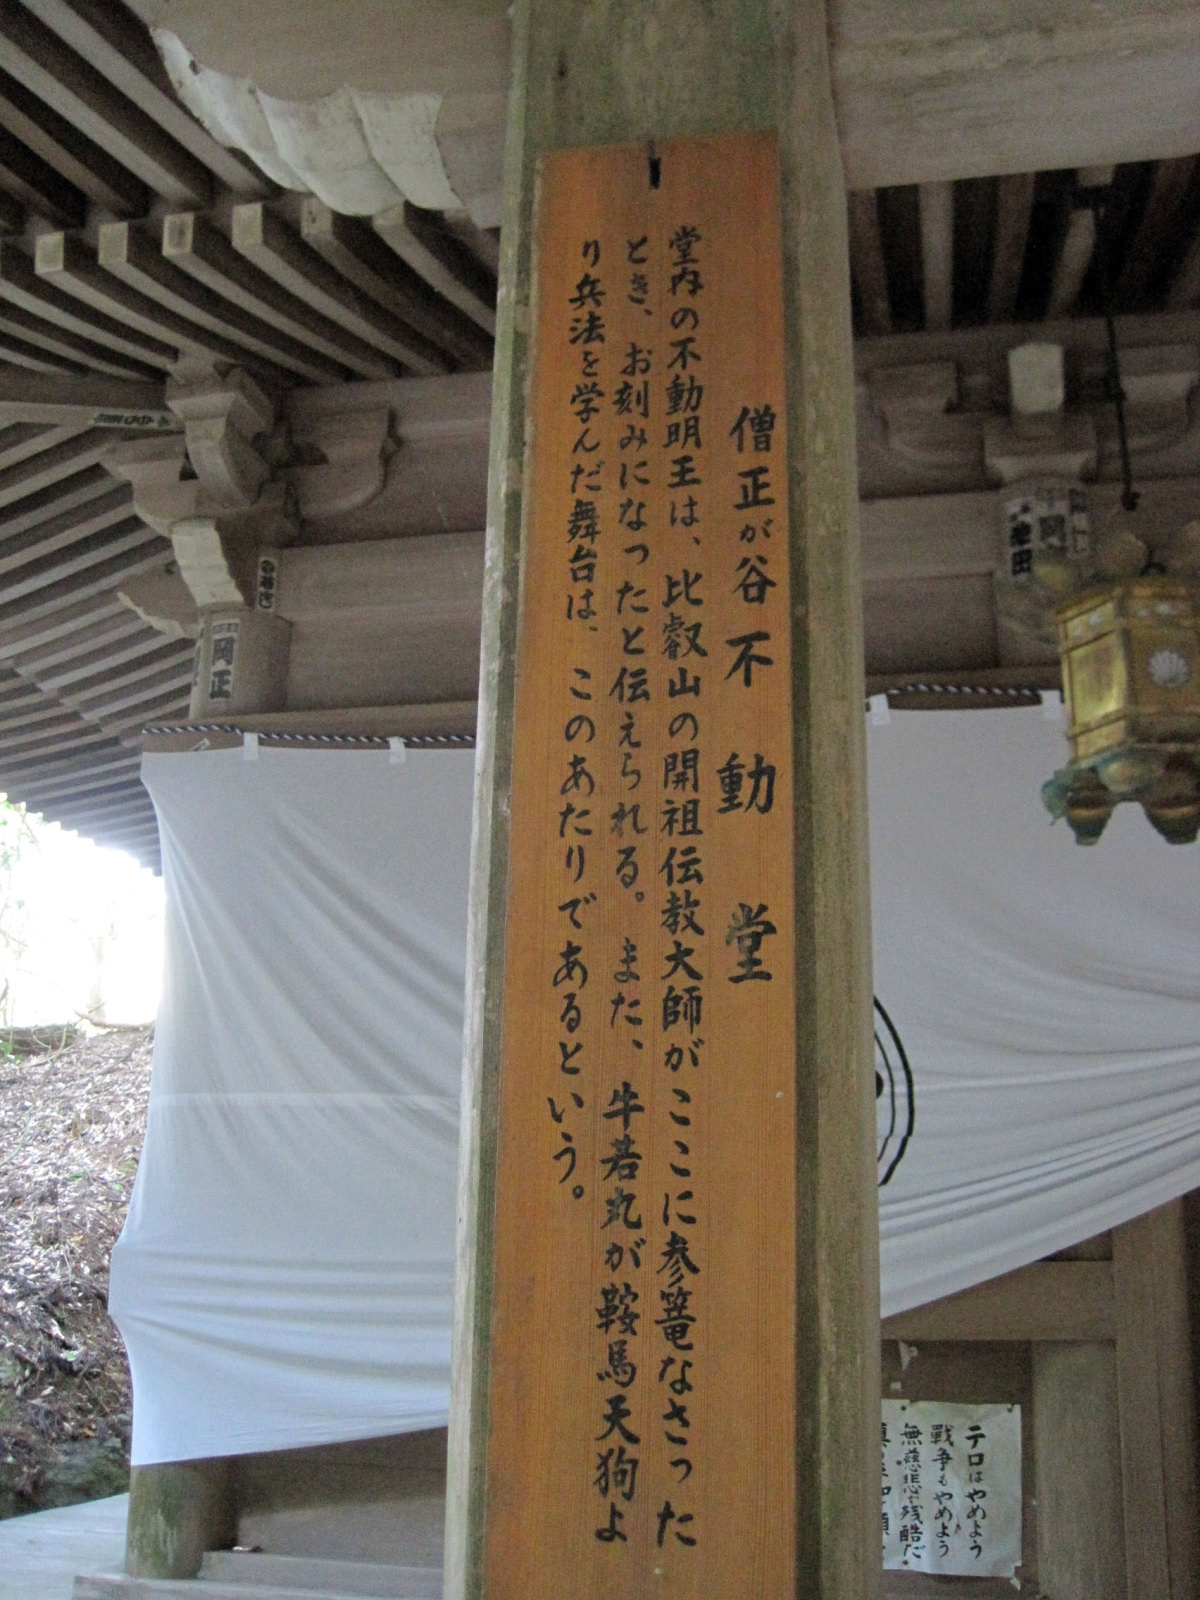 僧正が谷不動堂
堂内の不動明王は、比叡山の開祖伝教大師がここに参篭なさった
とき、お刻みになったと伝えられる。また、牛若丸が鞍馬天狗よ
り兵法を学んだ舞台は、このあたりであるという。
テロはやめよう
戦争もやめよう
無慈悲で残酷だ。
岡正